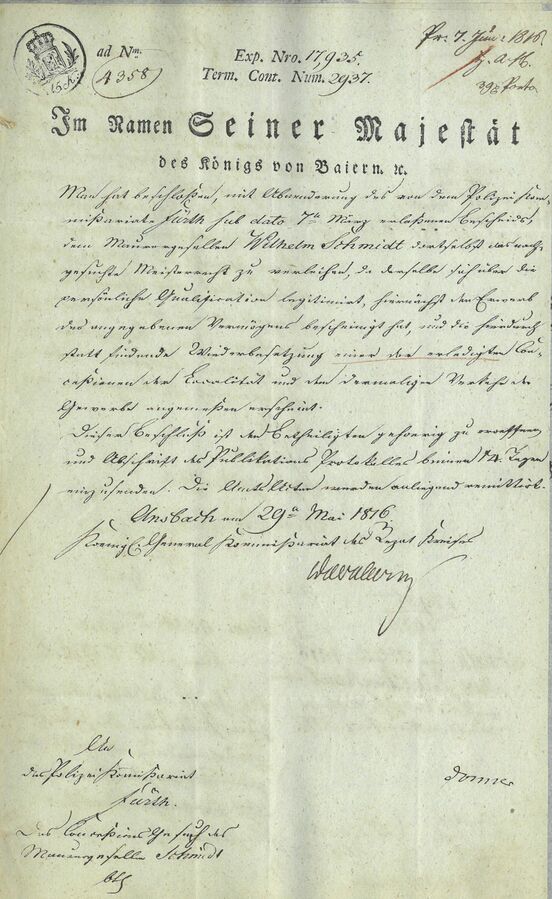 ad Nm.
4358
15. K.
Exp. Nro. 17,935.
Term. Cont. Num. 2937.
Pr: 7. Jun: 1816.
39 x Porto
Im Namen Seiner Majestät
des Königs von Baiern. ıc.
Man hat beschloßen, mit Abaenderung des von dem Polizei Kom-
mißariate Fürth sub dato 7ten März erlaßenen Bescheids,
dem Maurergesellen Wilhelm Schmidt dortselbst das nach-
gesuchte Meisterrecht zu verleihen, da derselbe sich über die
persönliche Qualification legitimirt, hiernächst den Erwerb
des angegebenen Vermögens bescheinigt hat, und die hierdurch
statt findende Wiederbesetzung einer der erledigten Con-
ceßionen der Localität und dem dermaligen Verkehr der
Gewerbe angemeßen erscheint.
Dieser Beschluß ist den Betheiligten gehoerig zu eroeffnen
und Abschrift des Publikations Protokolles binnen 14 Tagen
einzusenden. Die Amts Akten werden anliegend remittirt.
Ansbach am 29ten Mai 1816
Koenigl. General Kommißariat des Rezat Kreises
An
das Polizei Komißariat
Fürth.
Das Conceßions Gesuch des
Maurergeselle Schmidt
btf
Donner